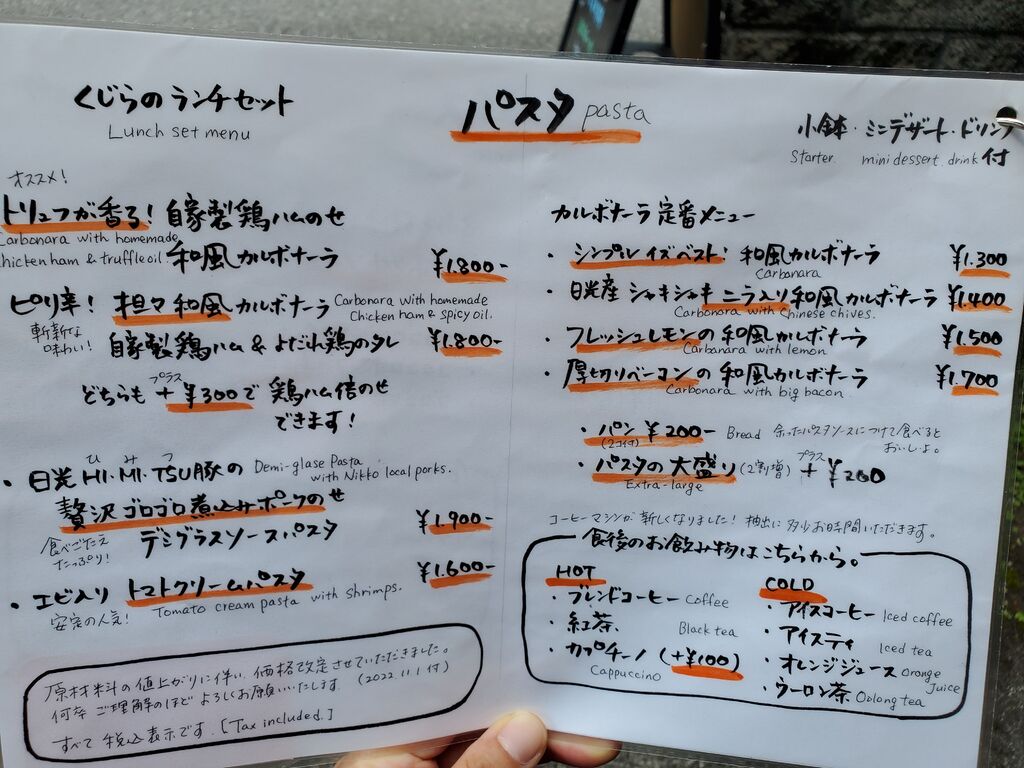 くじらのランチセット
Lunch set menu
パスタ pasta
小鉢・ミニデザート・ドリンク付
Starter. mini dessert. drink
オススメ!
トリュフが香る! 自家製鶏ハムのせ
Carbonara with homemade
Chicken ham & truffle oil
和風カルボナーラ ¥1.800-
ピリ辛! 担々和風カルボナーラ
Carbonara with homemade
Chicken ham & spicy oil.
斬新な
味わい!
自家製鶏ハム & よだれ鶏のタレ ¥1.800-
どちらも +プラス ¥300で 鶏ハム倍のせ
できます!
・日光 HI・MI・TSU豚の
ひ み つ
Demi-glase Pasta
with Nikko local porks.
贅沢ゴロゴロ煮込みポークのせ
デミグラスソースパスタ ¥1.900-
食べごたえ
たっぷり!
・エビ入り トマトクリームパスタ ¥1.600-
安定の人気! Tomato cream pasta with shrimps.
原材料の値上がりに伴い、価格改定させていただきました。
何卒 ご理解のほど よろしくお願いいたします。 (2022.11.1付)
すべて 税込表示です。 [Tax included.]
カルボナーラ 定番メニュー
・シンプルイズベスト! 和風カルボナーラ ¥1.300
Carbanara
・日光産 シャキシャキニラ入り和風カルボナーラ ¥1.400
Carbonara with Chinese chives.
・フレッシュレモンの和風カルボナーラ ¥1.500
Carbanara with lemon
・厚切りベーコンの 和風カルボナーラ ¥1.700
Carbonara with big bacon
・パン ¥200- Bread 余ったパスタソースにつけて食べると
(2コ付) おいしいよ。
・パスタの大盛り (2割増) プラス + ¥200
Extra-large
コーヒーマシンが新しくなりました! 抽出に多少お時間いただきます。
食後のお飲み物はこちらから。
HOT
・ブレンドコーヒー Coffee
・紅茶 Black tea
・カプチーノ (+¥100)
Cappuccino
COLD
・アイスコーヒー Iced coffee
・アイスティ Iced tea
・オレンジジュース Orange
Juice
・ウーロン茶 Oolong tea